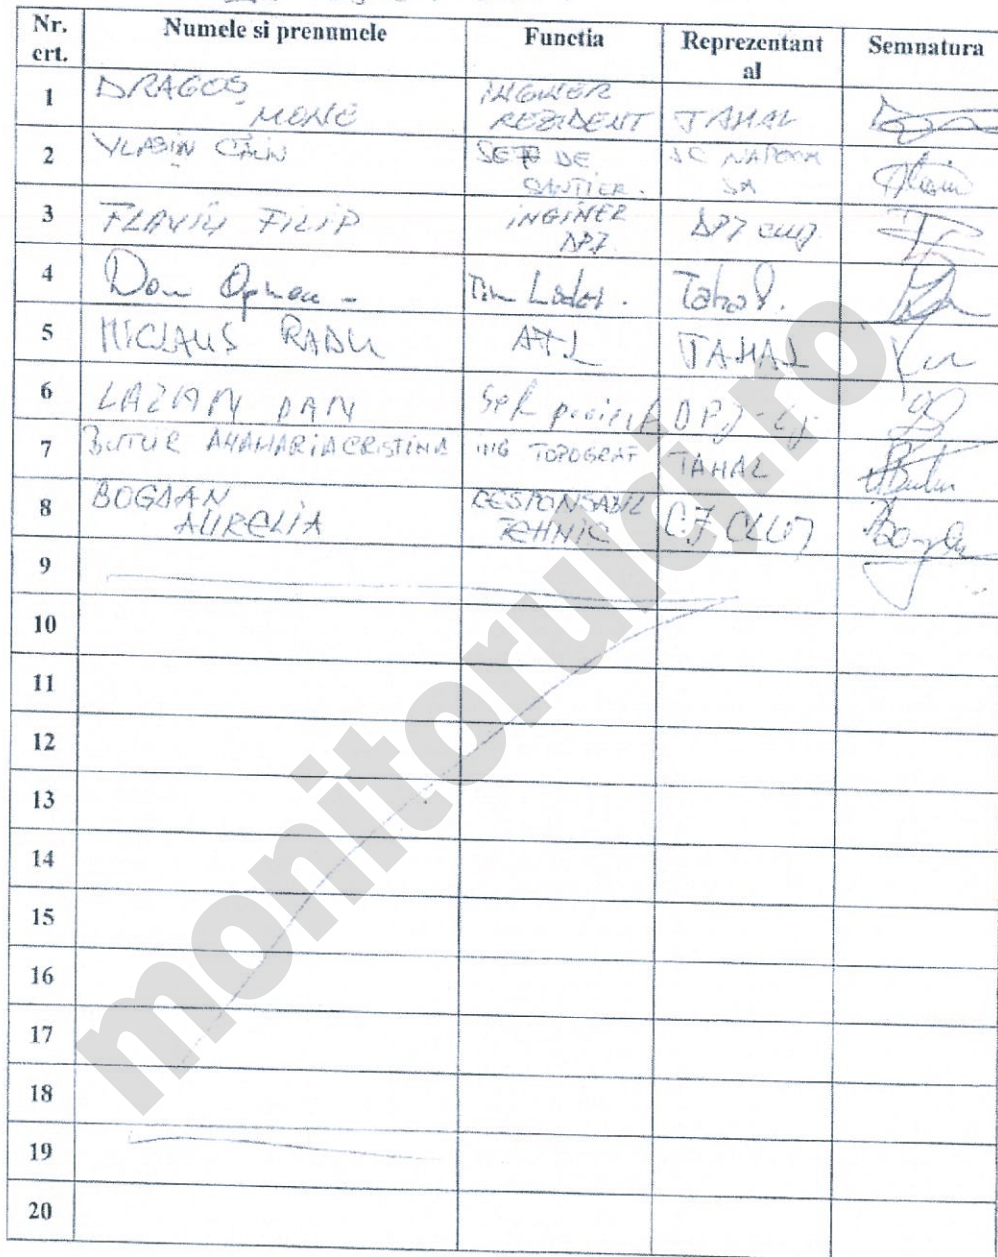 Nr. crt. Numele si prenumele Functia Reprezentant al Semnatura
1 DRAGOS MONE INGINER REZIDENT TAHAL
2 VLASIN CĂLIN SEF DE SANTIER. SC NAPOCA SA
3 FLAVIU FILIP INGINER DPJ DPJ CLUJ
4 Dan Oprean - Tahal.
5 MICLAUS RADU TAHAL
6 LAZIAN DAN Sef DPJ - Cj
7 BUTUR ANAMARIA CRISTINA ING TOPOGRAF TAHAL
8 BOGDAN AURELIA RESPONSABIL TEHNIC CJ CLUJ
9
10
11
12
13
14
15
16
17
18
19
20
monitorulcj.ro